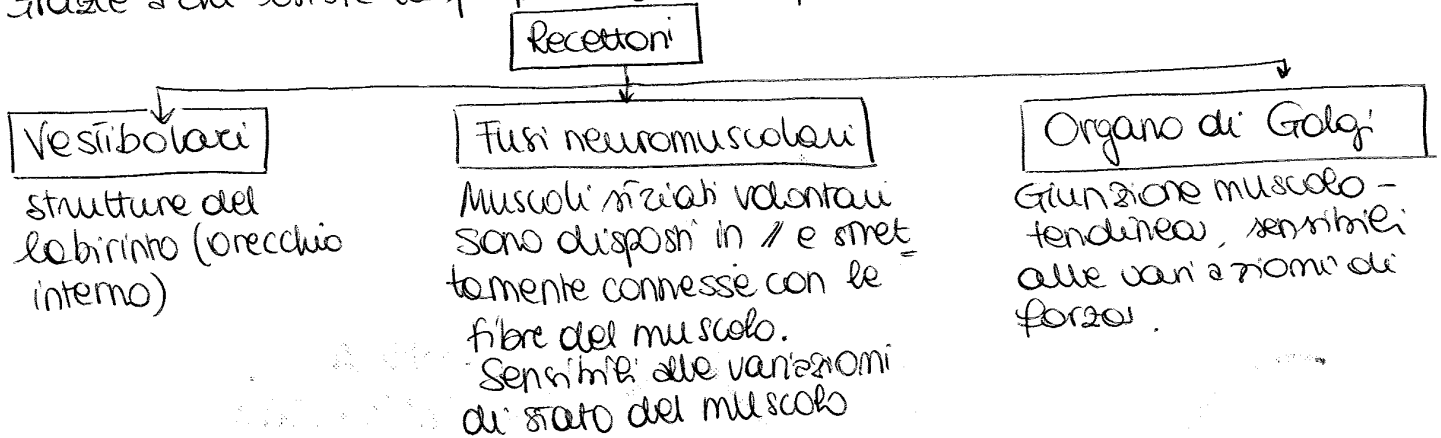 Grazie a chi
Recettori
Vestibolari
strutture del
labirinto (orecchio
interno)
Fusi neuromuscolari
Muscoli striati volontari
sono disposti in // e stret
tamente connesse con le
fibre del muscolo.
Sensibili alle variazioni
di stato del muscolo
Organo di Golgi
Giunzione muscolo-
tendinea, sensibili
alle variazioni di
forza.